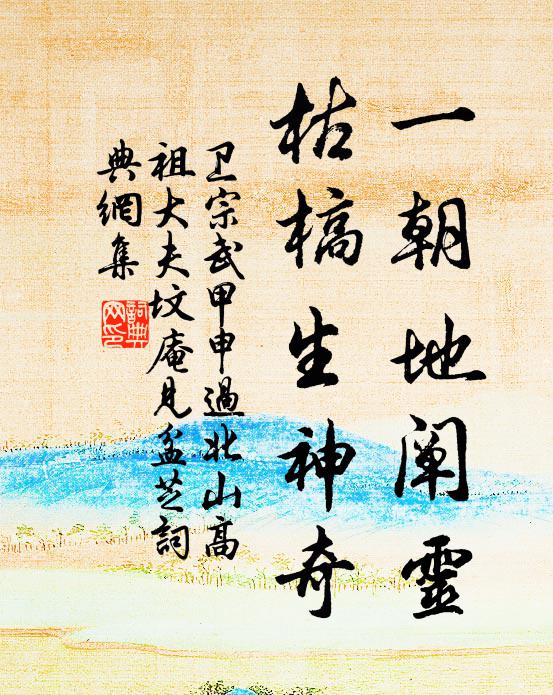 一朝地闡靈
枯槁生神奇
卫宗武甲申過北山高
祖大夫坟庵見盆芝詞
典網集
詞典
网印